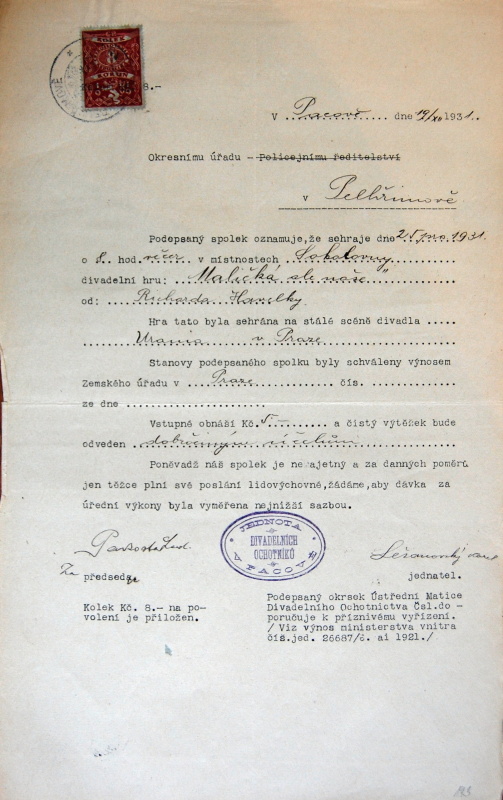 KOLEK
KORUN
8.-
V Pacově dne 19/XII 1931.
Okresnímu úřadu - Policejnímu ředitelství
v Pelhřimově
Podepsaný spolek oznamuje, že sehraje dne 25/pro 1931
o 8. hod. večer v místnostech Sokolovny
divadelní hru: Maličká ale naše"
od: Richarda Havelky
Hra tato byla sehrána na stálé scéně divadla .....
Urania v Praze
Stanovy podepsaného spolku byly schváleny výnosem
Zemského úřadu v Praze čís. ................
ze dne ....................
Vstupné obnáší Kč 5.- a čistý výtěžek bude
odveden dobročinným účelům
Poněvadž náš spolek je nemajetný a za daných poměrů
jen těžce plní své poslání lidovýchovné, žádáme, aby dávka za
úřední výkony byla vyměřena nejnižší sazbou.
JEDNOTA
DIVADELNÍCH
OCHOTNÍKŮ
V PACOVĚ
Za předseda
jednatel.
Kolek Kč. 8.- na po-
volení je přiložen.
Podepsaný okrsek Ústřední Matice
Divadelního Ochotnictva Čsl. do -
poručuje k příznivému vyřízení.
/ Viz výnos ministerstva vnitra
čís. jed. 26687/6. ai 1921./